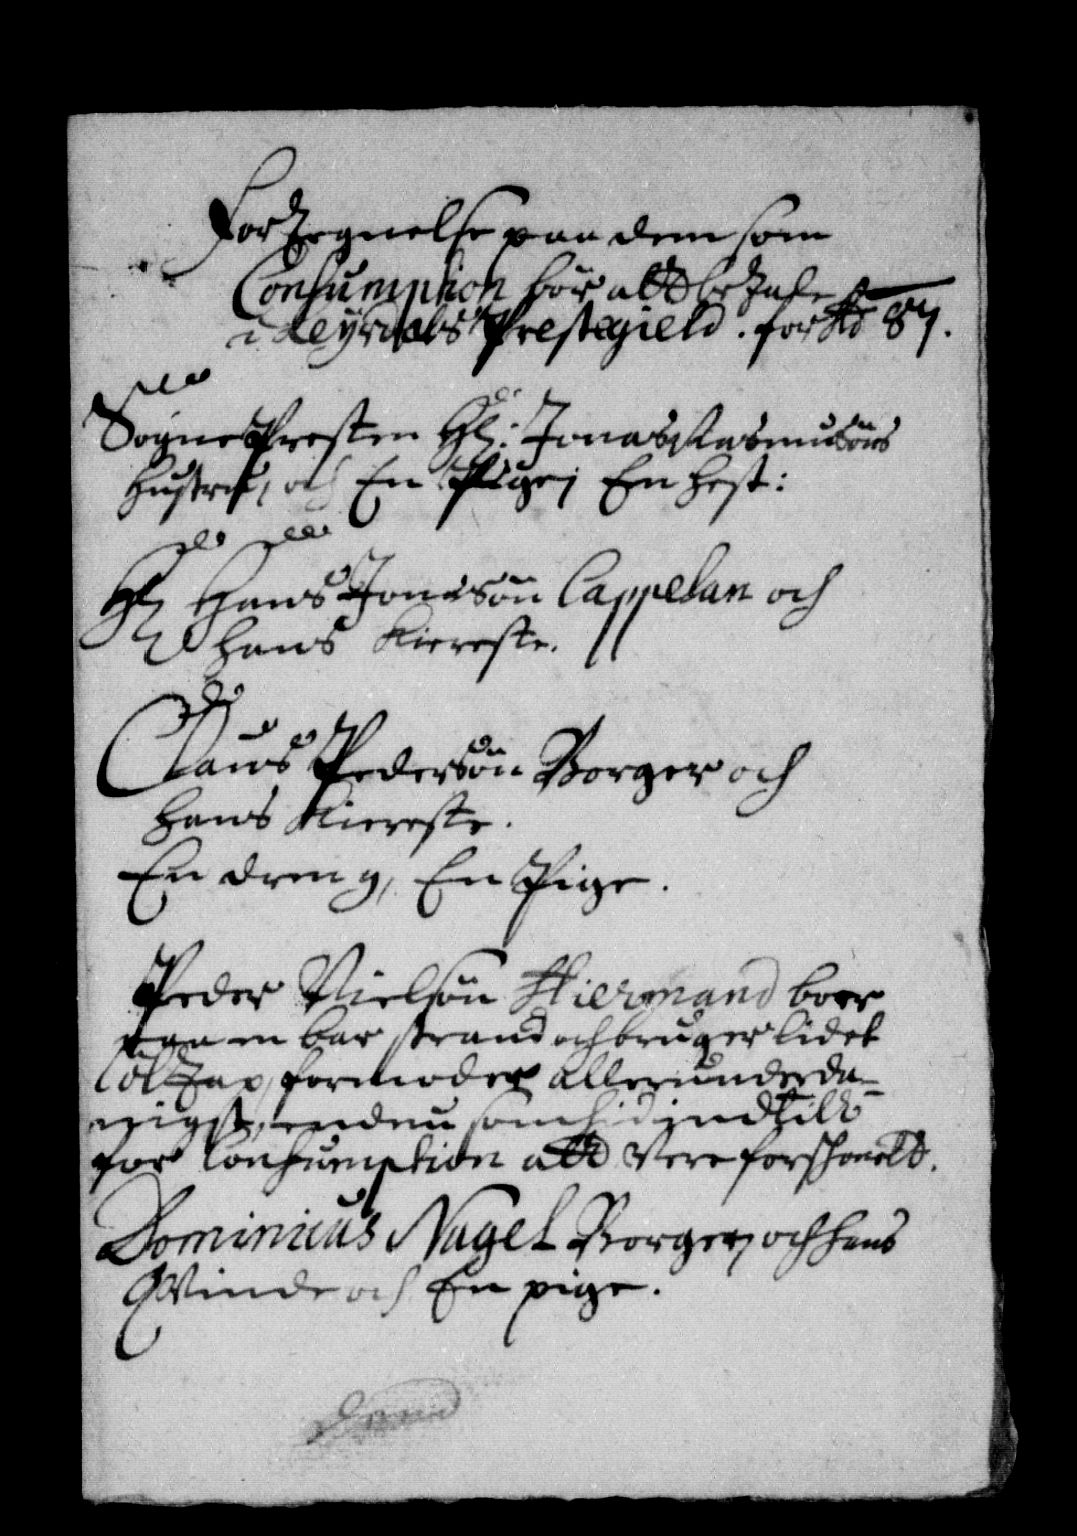 Fortegnelse paa dem som
Consumption bör att betale
i Leyrdals Prestegield. for Ao 87.
SognePresten Hr: Jonas Rasmusöns
hustru, och En Pige, En hest:
Hr Hans Jonasön Cappelan och
hans Kiereste.
Claus Pedersön Borger och
hans Kiereste.
En dreng, En Pige.
Peder Nielsön Stiermand boer
paa en bar strand och bruger lidet
öltap, formoder allerunderda-
nigst, endnu som hid indtill
for Consumption att Vere forschonelt.
Dominicus Nagel Borger, och hans
Qvinde och En pige.